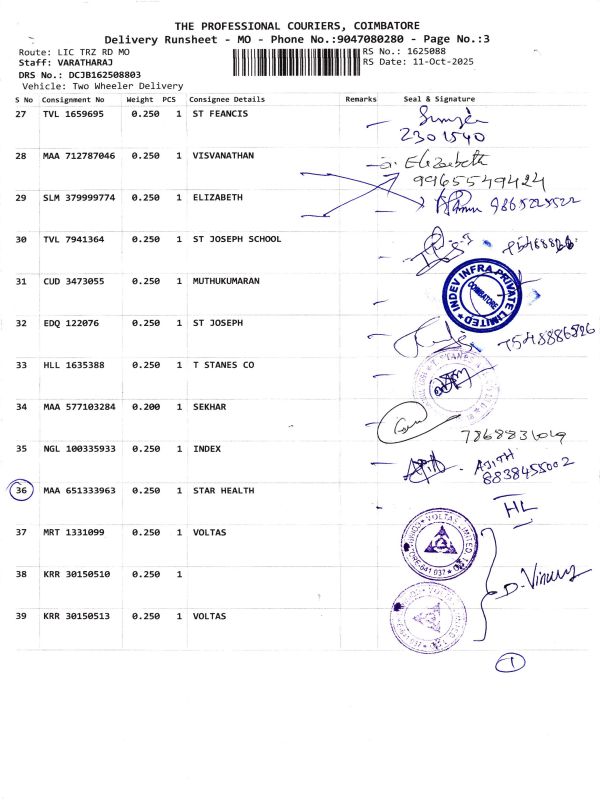 THE PROFESSIONAL COURIERS, COIMBATORE
Delivery Runsheet - MO - Phone No.:9047080280 - Page No.:3
Route: LIC TRZ RD MO
RS No.: 1625088
Staff: VARATHARAJ
RS Date: 11-Oct-2025
DRS No.: DCJB162508803
Vehicle: Two Wheeler Delivery
S No Consignment No Weight PCS Consignee Details Remarks Seal & Signature
27 TVL 1659695 0.250 1 ST FEANCIS
2301540
28 MAA 712787046 0.250 1 VISVANATHAN
Elizabeth
9965549424
29 SLM 379999774 0.250 1 ELIZABETH
30 TVL 7941364 0.250 1 ST JOSEPH SCHOOL
31 CUD 3473055 0.250 1 MUTHUKUMARAN
INDEV INFRA PRIVATE LIMITED
COIMBATORE
32 EDQ 122076 0.250 1 ST JOSEPH
7548886826
33 HLL 1635388 0.250 1 T STANES CO
34 MAA 577103284 0.200 1 SEKHAR
35 NGL 100335933 0.250 1 INDEX
AJITH
8838455002
36 MAA 651333963 0.250 1 STAR HEALTH
HL
37 MRT 1331099 0.250 1 VOLTAS
VOLTAS LIMITED
38 KRR 30150510 0.250 1
D. Vinay
39 KRR 30150513 0.250 1 VOLTAS
1